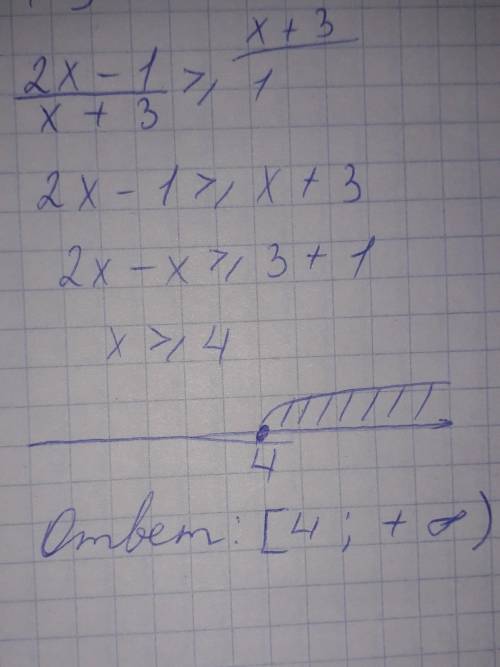 x + 3
2x - 1 ⩾ 1
x + 3
2x - 1 ⩾ x + 3
2x - x ⩾ 3 + 1
x ⩾ 4
4
Ответ: [4; + ∞)